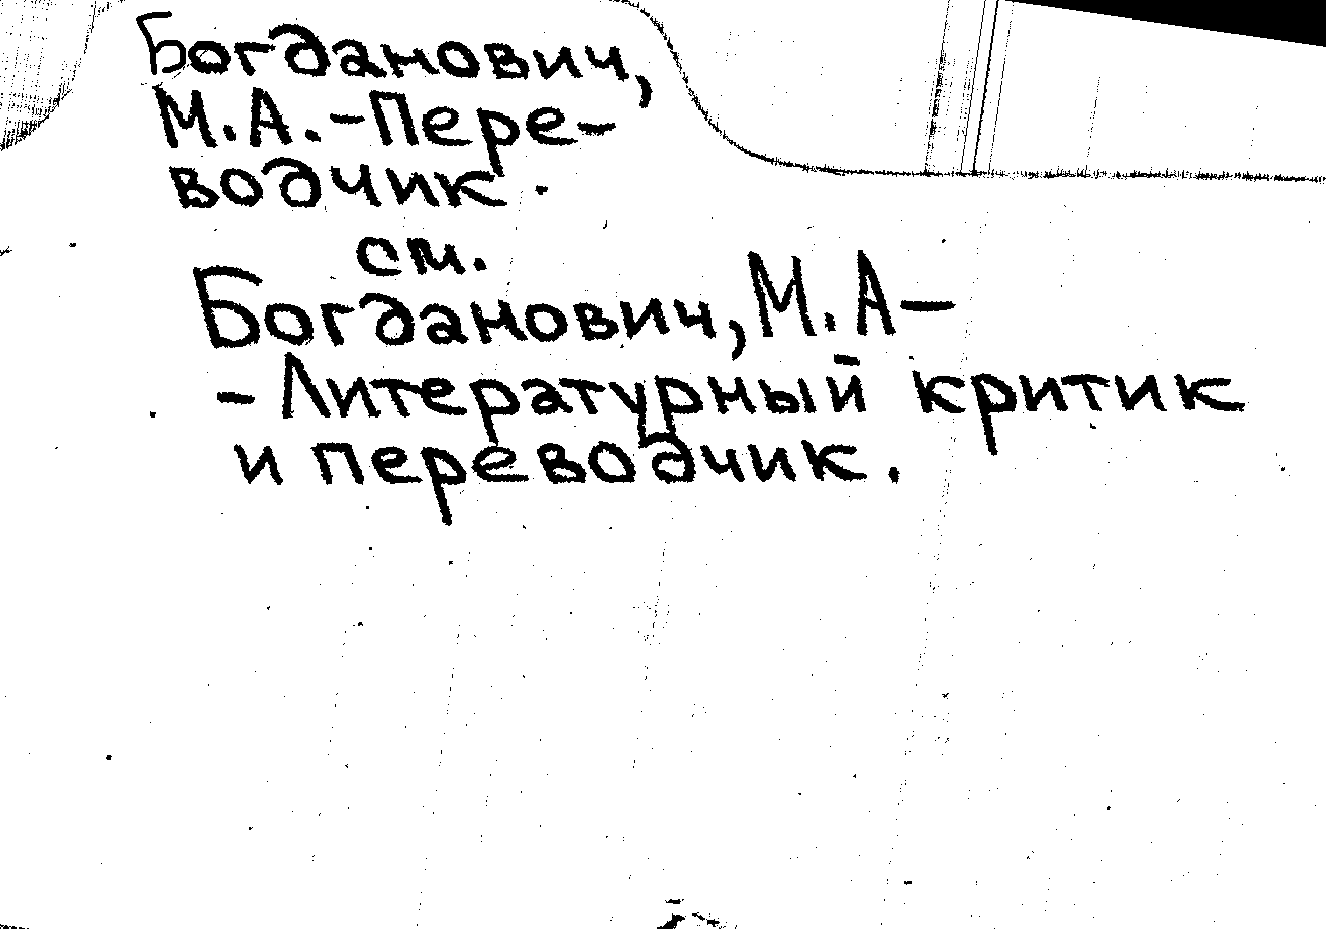 Богданович,
М.А.-Пере-
водчик.
см.
Богданович, М.А-
- Литературный критик
и переводчик.